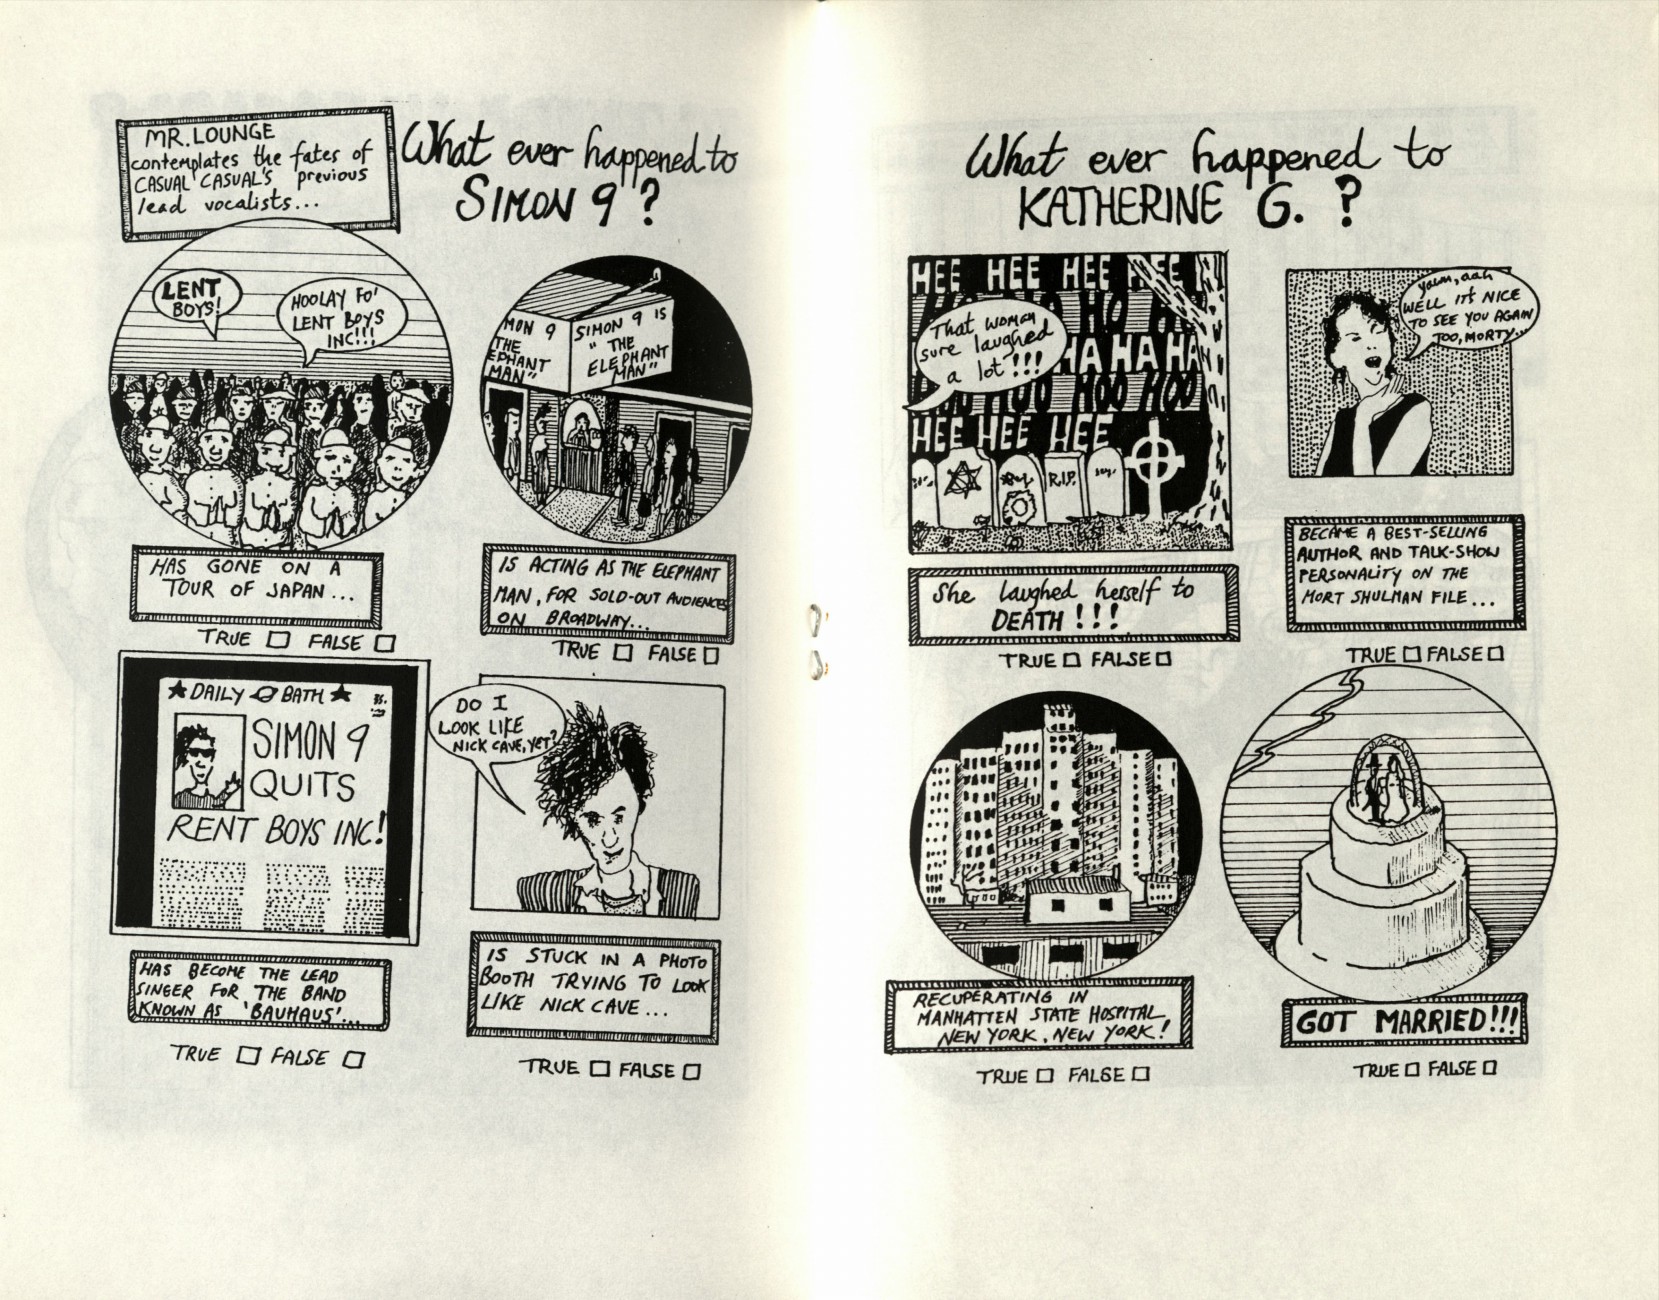 MR. LOUNGE
contemplates the fates of
CASUAL CASUAL'S previous
lead vocalists...
What ever happened to
SIMON 9 ?
LENT
BOYS!
HOOLAY FO'
LENT BOYS
INC!!!
HAS GONE ON A
TOUR OF JAPAN...
TRUE □ FALSE □
MON 9
THE
EPHANT
MAN"
SIMON 9 IS
"THE
ELEPHANT
MAN"
IS ACTING AS THE ELEPHANT
MAN, FOR SOLD-OUT AUDIENCES
ON BROADWAY...
TRUE □ FALSE □
★ DAILY BATH ★
SIMON 9
QUITS
RENT BOYS INC!
HAS BECOME THE LEAD
SINGER FOR THE BAND
KNOWN AS 'BAUHAUS'...
TRUE □ FALSE □
DO I
LOOK LIKE
NICK CAVE, YET?
IS STUCK IN A PHOTO
BOOTH TRYING TO LOOK
LIKE NICK CAVE...
TRUE □ FALSE □
What ever happened to
KATHERINE G. ?
HEE HEE HEE HEE
HO HO HO HO
HA HA HA
HOO HOO HOO HOO
HEE HEE HEE
That woman
sure laughed
a lot!!!
R.I.P.
She laughed herself to
DEATH!!!
TRUE □ FALSE □
yawn, aah
WELL IT'S NICE
TO SEE YOU AGAIN
TOO, MORTY...
BECAME A BEST-SELLING
AUTHOR AND TALK-SHOW
PERSONALITY ON THE
MORT SHULMAN FILE...
TRUE □ FALSE □
RECUPERATING IN
MANHATTEN STATE HOSPITAL
NEW YORK, NEW YORK!
TRUE □ FALSE □
GOT MARRIED!!!
TRUE □ FALSE □